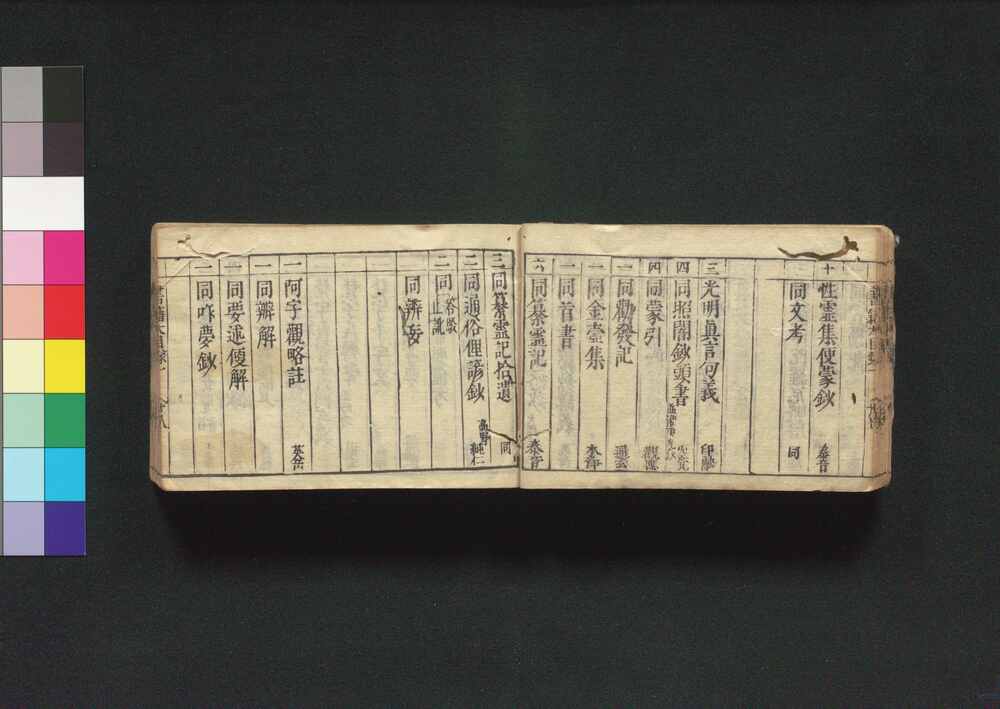 十 性霊集便蒙鈔 泰音
同文考 同
三 光明眞言句義 印融
四 同照闇鈔頭書
四 同蒙引 觀應
一 同勸發記
一 同金壺集
一 同首書
六 同纂霊記 泰音
三 同纂霊記拾遺 同
二 同通俗俚諺鈔 高野 純仁
二 同 谷響 止訛
同辨妄
一 阿字觀略註
一 同辨解
一 同要述便解
一 同咋夢鈔